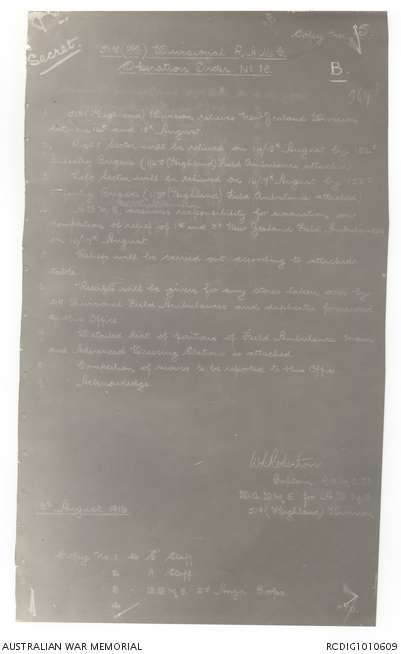 Secret.
Copy No. 5
51st (Hd) Divisional R.A.M.C.
Operation Order No 12.
B.
1. 51st (Highland) Division relieves New Zealand Division
between 14th and 18th August.
2. Right Sector will be relieved on August by 152nd
Infantry Brigade (Highland) Field Ambulance attached)
3. Left Sector will be relieved on August by 153rd
Infantry Brigade (Highland) Field Ambulance attached)
4. A.D.M.S. assumes responsibility for evacuation, on
completion of relief of 1st and 2nd New Zealand Field Ambulances
on August
5. Reliefs will be carried out according to attached
table.
6. Receipts will be given for any stores taken over by
51st Divisional Field Ambulances and duplicates forwarded
to this Office.
7. Detailed list of positions of Field Ambulances
and Advanced Dressing Stations is attached.
8. Completion of moves to be reported to this Office
9. Acknowledge.
Captain, R.A.M.C.
D.A.D.M.S for A.D.M.S
51st (Highland) Division
August 1916
Copy No. 1 to G Staff
2 A Staff
3 D.D.M.S 2nd Anzac Corps
4
AUSTRALIAN WAR MEMORIAL
RCDIG1010609